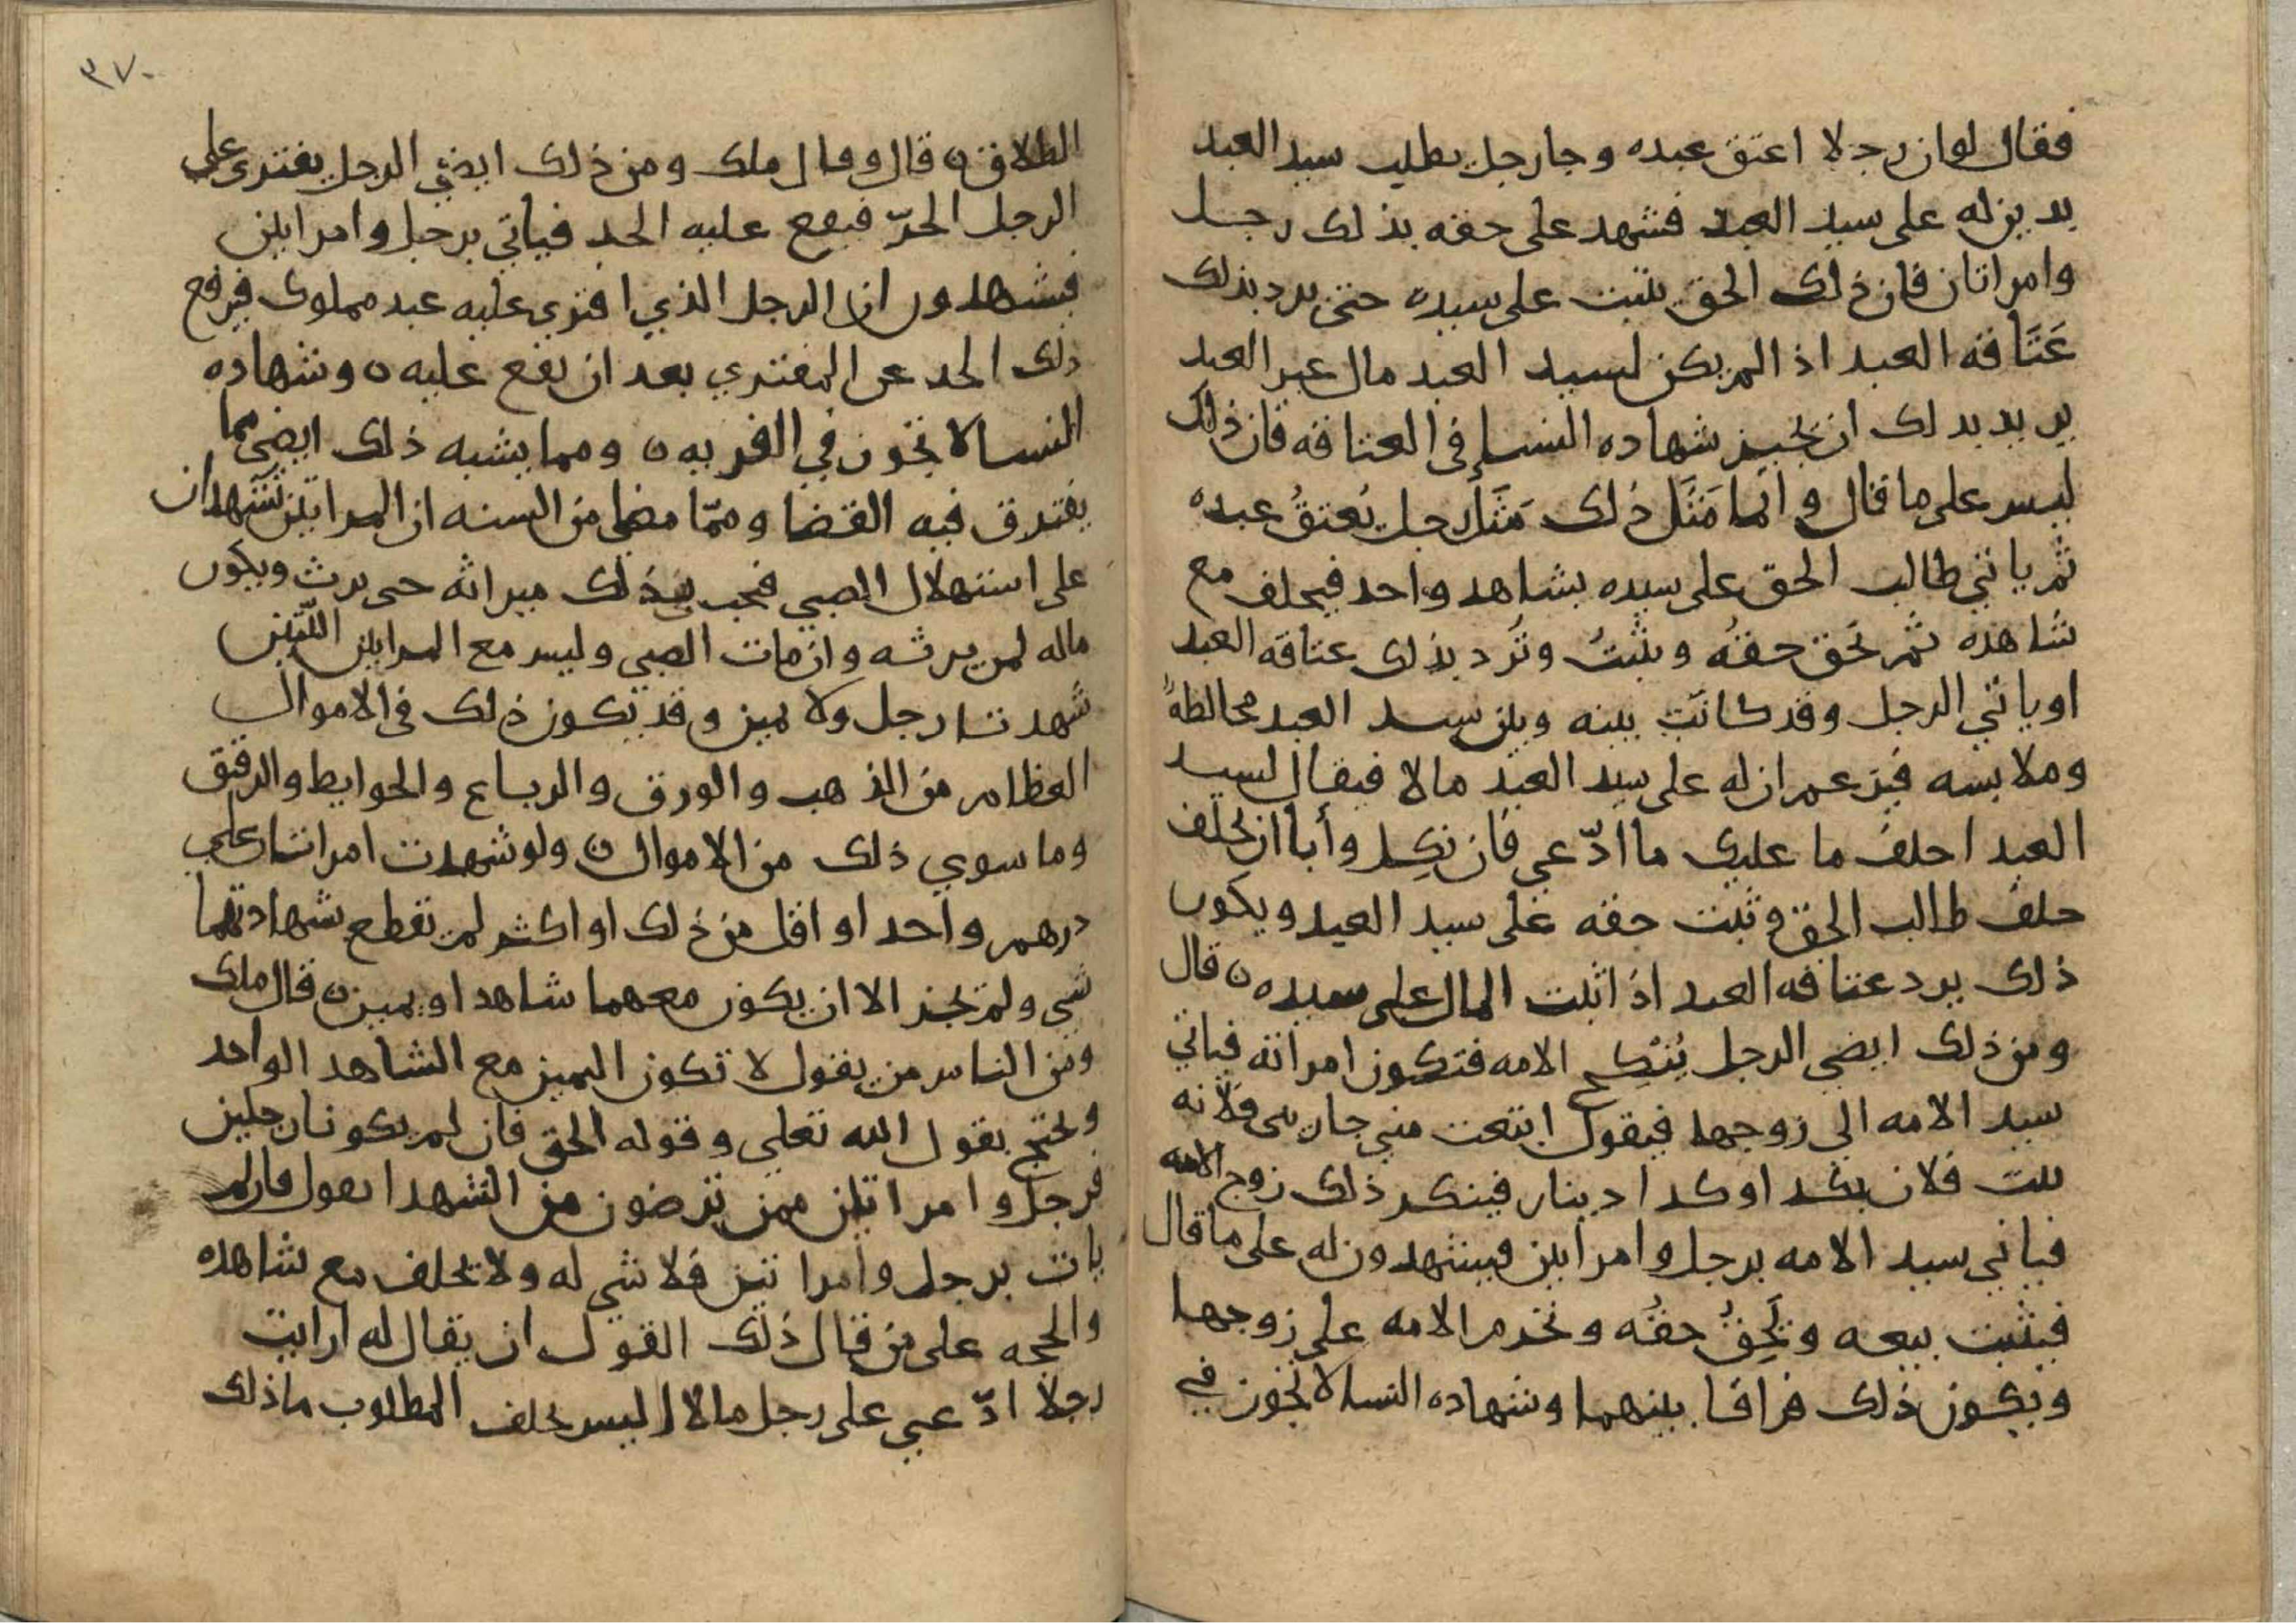 فقال لو ان رجلا اعتق عبده وجا رجل يطلب سيد العبد
بدين له على سيد العبد فشهد على حقه بذلك رجل
وامراتان فان ذلك الحق يثبت على سيده حتى يرد بذلك
عَتَاقه العبد اذ الم يكن لسيد العبد مال غير العبد
يريد بذلك ان يجيز شهاده النسا في العتاقه فان ذلك
ليس على ما قال وانما مَثَل ذلك مَثَل رجل يُعتقُ عبده
ثم ياتي طالب الحق على سيده بشاهد واحد فيحلف مع
شاهده ثم يَحق حقهُ ويثبتُ وتُرد بذلك عتاقه العبد
او ياتي الرجل وقد كانت بينه وبين سيد العبد مخالطةٌ
وملابسه فيزعم ان له على سيد العبد مالا فيقال لسيد
العبد احلف ما عليك ما ادّعى فان نكِل وأبا ان يحلف
حلف طالب الحق وثبت حقه على سيد العبد ويكون
ذلك يرد عتاقه العبد اذ اثبت المال على سيده ن قال
ومن ذلك ايضى الرجل يُنكِح الامه فتكون امراته فياتي
سيد الامه الى زوجها فيقول ابتعت مني جاريتي فلانه
انت فلان بكذ اوكد ا دينار فينكر ذلك زوج الامه
فياتي سيد الامه برجل وامراتين فيشهدون له على ما قال
فيثبت بيعه ويَحِقُ حقهُ وتحرم الامه على زوجها
ويكون ذلك فراقا بينهما وشهاده النسا لا تجوز في
٣٧٠
الطلاق ن قال وقال ملك ومن ذلك ايضي الرجل يفتري على
الرجل الحرّ فيقع عليه الحد فياتي برجل وامراتين
فيشهدون ان الرجل الذي افتري عليه عبد مملوك فيرفع
ذلك الحد عن المفتري بعد ان يقع عليه ن وشهاده
النسا لا تجوز في الفريه ن ومما يشبه ذلك ايضي مما
يفترق فيه القضا وممّا مضا من السنه ان المراتين تشهدان
على استهلال الصبي فيجب بذلك ميراثه حتى يرث ويكون
ماله لمن يرثه وان مات الصبي وليس مع المراتين اللّتين
شهدتا رجل ولا يمين وقد يكون ذلك في الاموال
العظام من الذهب والورق والرباع والحوايط والرقيق
وما سوي ذلك من الاموال ن ولو شهدت امراتان على
درهم واحد او اقل من ذلك او اكثر لم تقطع شهادتهما
شي ولم تجز الا ان يكون معهما شاهد او يمين ن قال ملك
ومن الناس من يقول لا تكون اليمين مع الشاهد الواحد
ويحتج بقول الله تعلى وقوله الحق فان لم يكونا رجلين
فرجل وامراتين ممن ترضون من الشهدا يقول فان لم
يات برجل وامراتين فلا شي له ولا يحلف مع شاهده
والحجه على من قال ذلك القول ان يقال له ارايت
رجلا ادّعى على رجل مالا اليس يحلف المطلوب ما ذلك